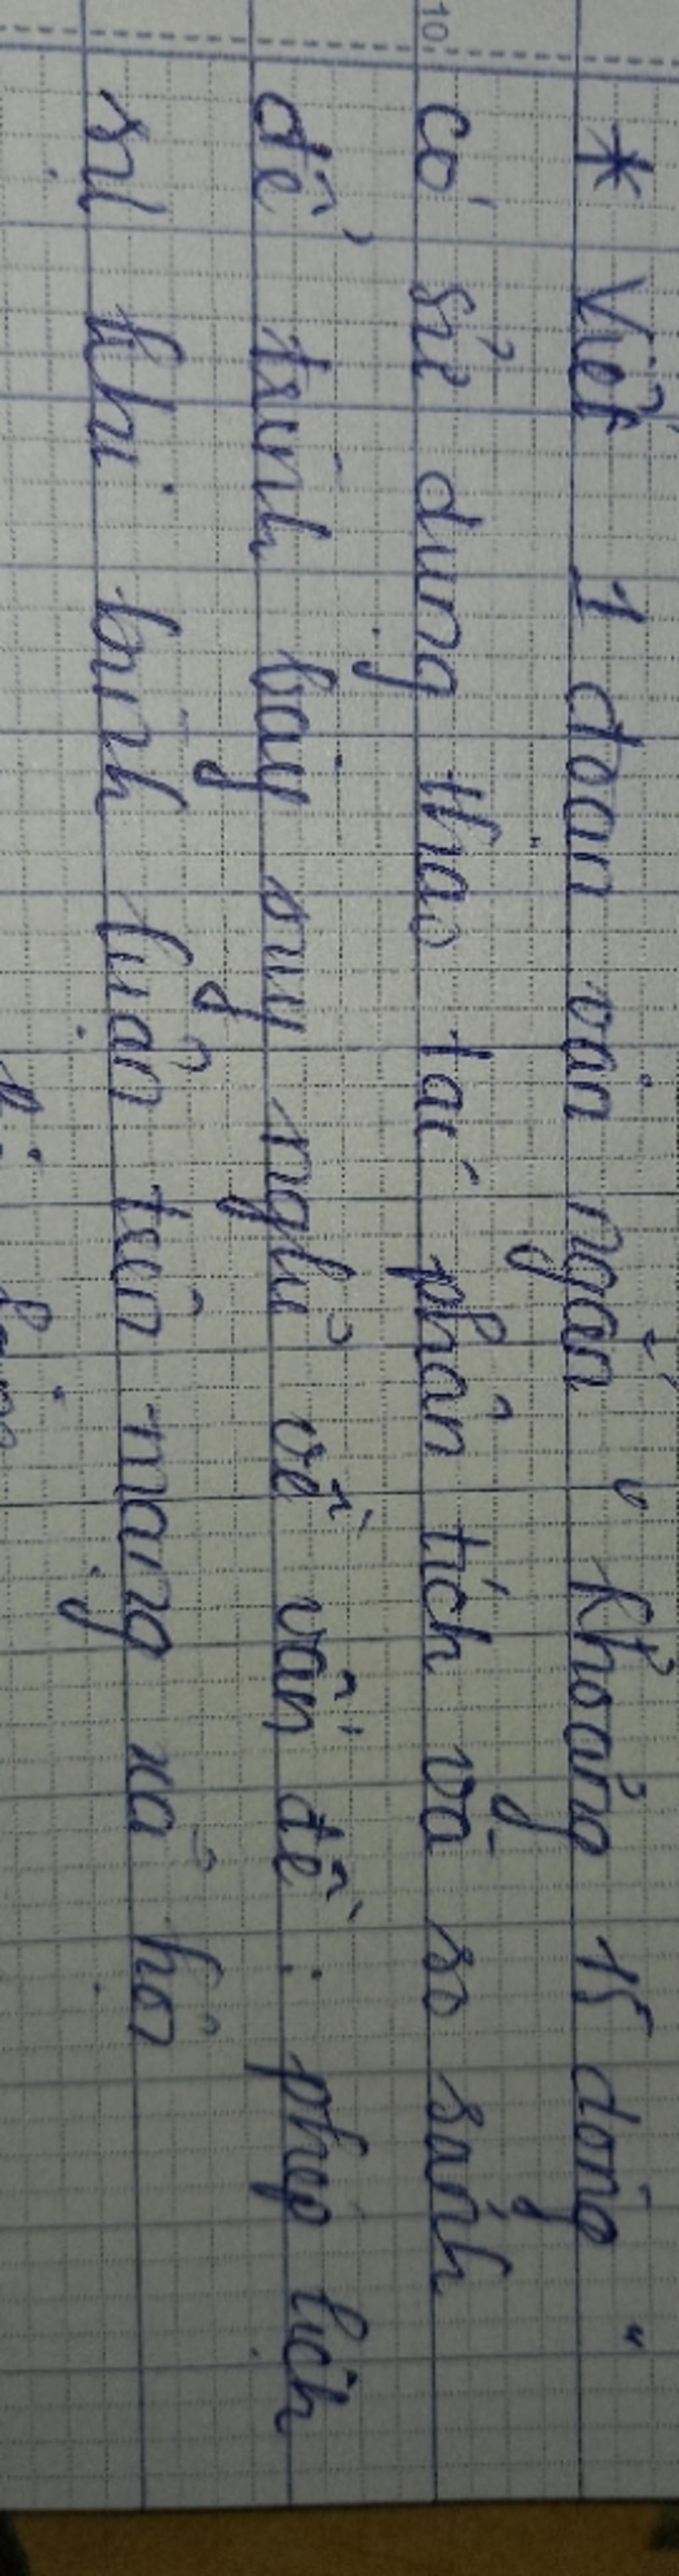 * Viết 1 đoạn văn ngắn " Khoảng 15 dòng "
có sử dụng thao tác phân tích và so sánh
để trình bày suy nghĩ về vấn đề : phép lịch
sự khi bình luận trên mạng xã hộ
10